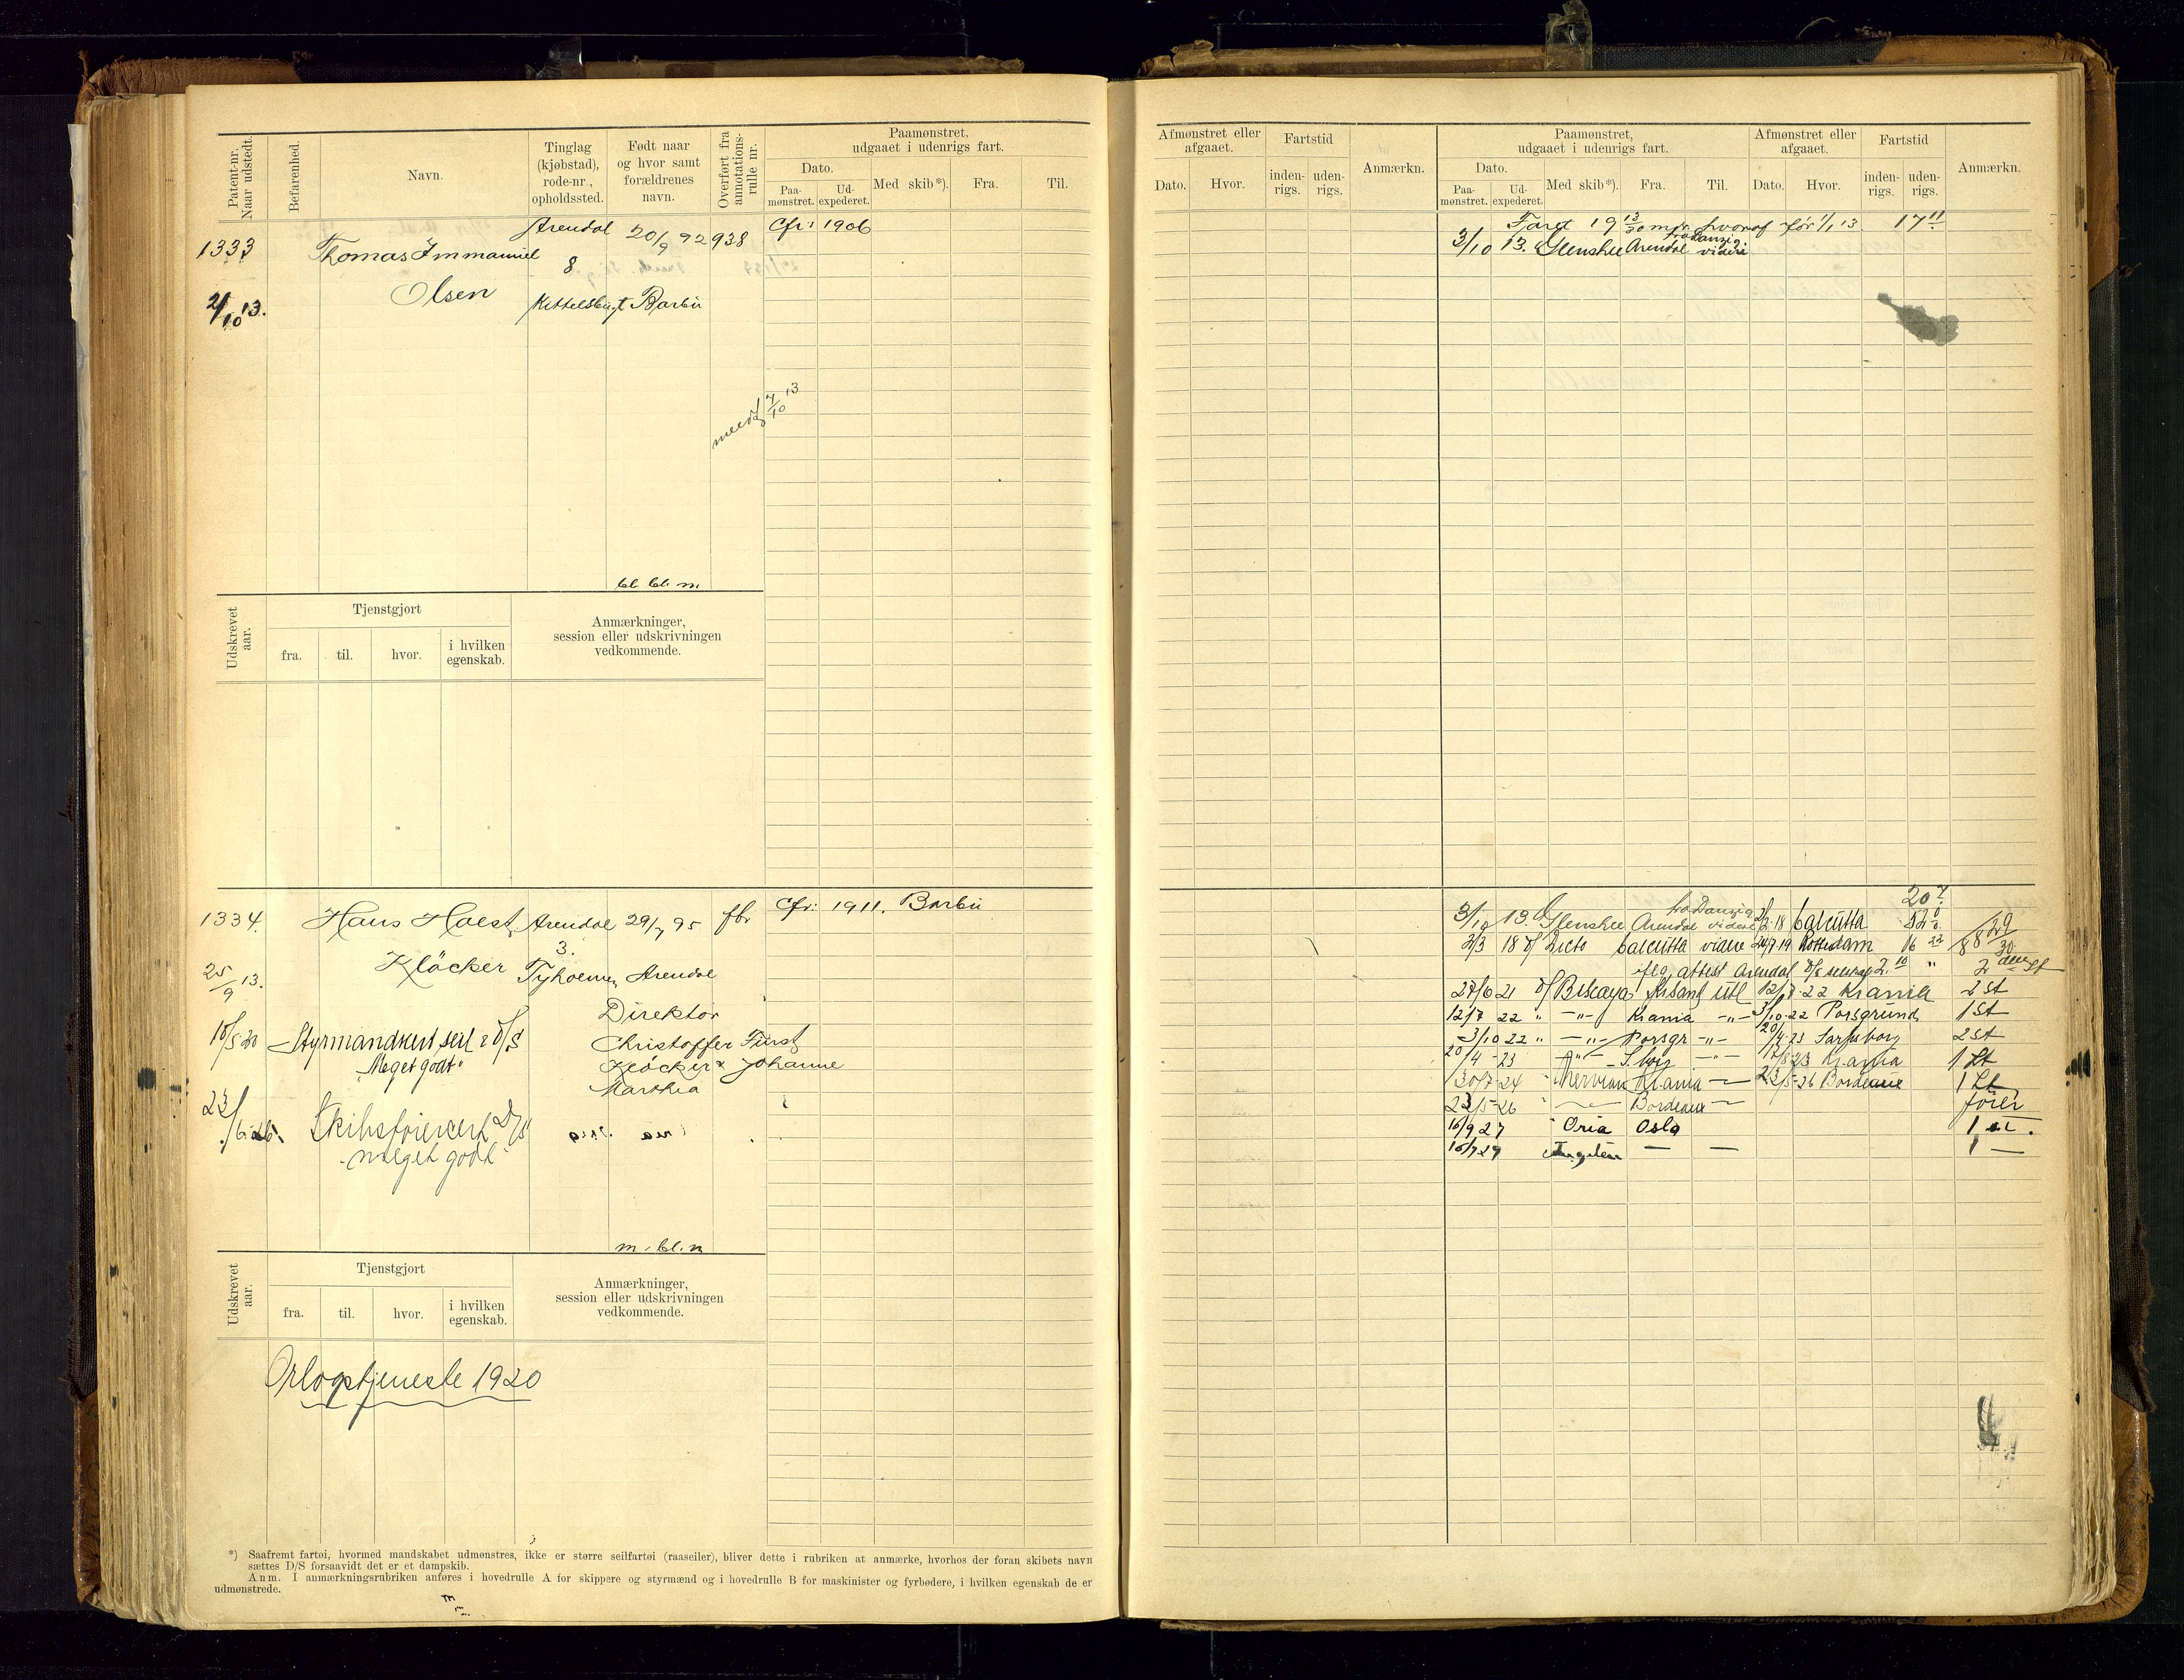 Patent-nr.
Naar udstedt.
Befarenhed.
Navn.
Tinglag
(kjøbstad),
rode-nr.,
opholdssted.
Født naar
og hvor samt
forældrenes
navn.
Overført fra
annotations-
rulle nr.
Paamønstret,
udgaaet i udenrigs fart.
Dato.
Paa-
mønstret.
Ud-
expederet.
Med skib*).
Fra.
Til.
1333
Thomas Immanuel
Olsen
2/10 13.
Arendal
8
Kittelsbugt
20/9 92
Barbu
938
Cfr: 1906
7/10 13
bl. bl. m
Udskrevet
aar.
Tjenstgjort
fra.
til.
hvor.
i hvilken
egenskab.
Anmærkninger,
session eller udskrivningen
vedkommende.
1334.
Hans Holst
Klöcker
25/9 13.
Arendal
3.
Tyholmen
29/7 95
Arendal
Direktor
Christoffer Fürst
Klöcker & Johanne
Marthea
fbr
Cfr: 1911. Barbu
18/5 20 Styrmandscert seil & D/S
"Meget godt"
23/6 26. Skibsførercert D/S
"meget godt"
m. bl. n
Udskrevet
aar.
Tjenstgjort
fra.
til.
hvor.
i hvilken
egenskab.
Anmærkninger,
session eller udskrivningen
vedkommende.
Orlogstjeneste 1920
*) Saafremt fartøi, hvormed mandskabet udmønstres, ikke er større seilfartøi (raaseiler), bliver dette i rubriken at anmærke, hvorhos der foran skibets navn
sættes D/S forsaavidt det er et dampskib.
Anm. I anmærkningsrubriken anføres i hovedrulle A for skippere og styrmænd og i hovedrulle B for maskinister og fyrbødere, i hvilken egenskab de er
udmønstrede.
Afmønstret eller
afgaaet.
Dato.
Hvor.
Fartstid
inden-
rigs.
uden-
rigs.
Anmærkn.
Paamønstret,
udgaaet i udenrigs fart.
Dato.
Paa-
mønstret.
Ud-
expederet.
Med skib*).
Fra.
Til.
Afmønstret eller
afgaaet.
Dato.
Hvor.
Fartstid
inden-
rigs.
uden-
rigs.
Anmærkn.
Faret 19 13/30 mdr hvoraf før 1/1 13 17 11
3/10 13. Glenshee Arendal fra Danzig videre
20 7
3/10 13. Glenshee Arendal fra Danzig videre 2/2 18 Calcutta
2/3 18 D/S Calcutta videre 24/7 19 Rotterdam 16 22
iflg. attest Arendal 2 10 "
27/6 21 D/S Biscaya Krsand Utl 12/7 22 Krania 2 st
12/7 22 " -"- Krania -"- 3/10 22 Porsgrund 1 st
3/10 22 " -"- Porsgr -"- 20/4 23 Sarpsborg 2 st
20/4 23 -"- S.borg -"- 17/8 23 Krania 1 st
30/7 24 Krania — 23/5-26 Bordeaux 1 st
23/5-26 — Bordeaux — fører
16/9 27 " Oria Oslo 1 st.
16/7 29 — — 1 —